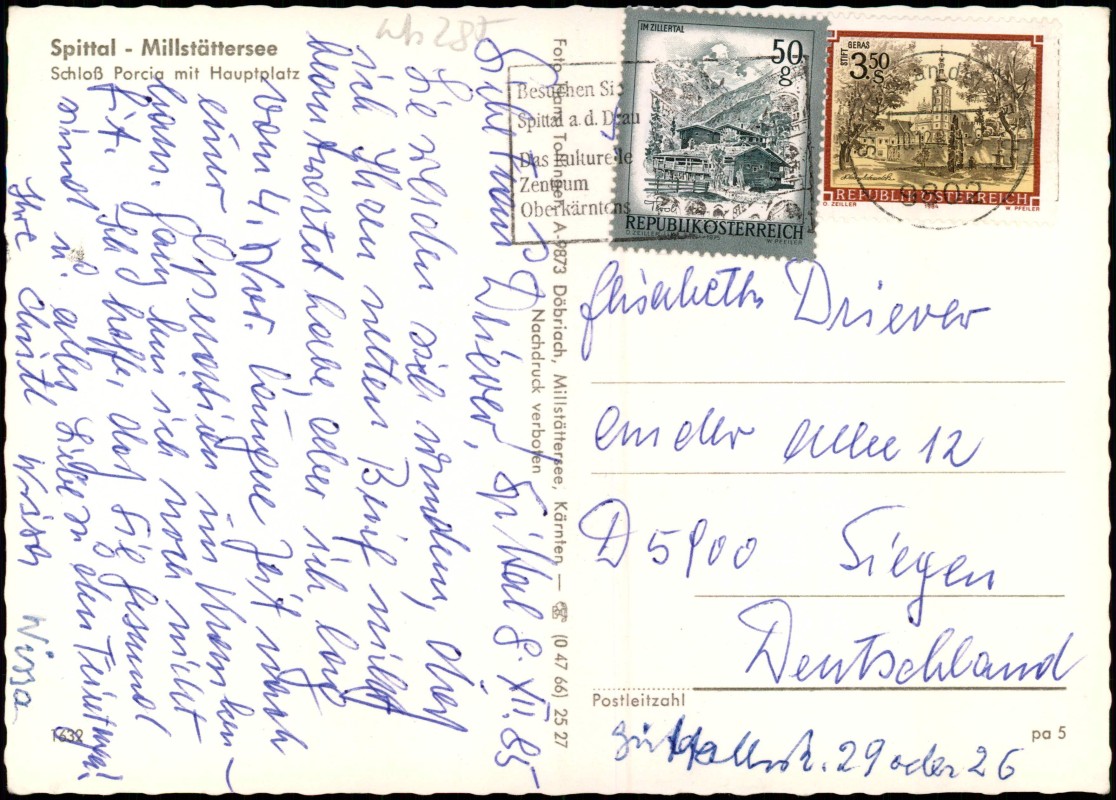 Spittal - Millstättersee
Schloß Porcia mit Hauptplatz
Spittal 8. XII. 85
Frau Driever,
Sie werden sich wundern, daß
ich Ihren netten Brief nicht
beantwortet habe, aber ich lag
vom 4. Nov. längere Zeit nach
einer Operation im Kranken-
haus. Ganz bin ich noch nicht
fit. Ich hoffe, daß Sie gesund
sind u. alles Liebe zu den Feiertagen!
Ihre Christl
Foto Hans Tollinger, A-9873 Döbriach, Millstättersee, Kärnten — ☎ (0 47 66) 25 27
Nachdruck verboten
Besuchen Si
Spittal a. d. Drau
Das kulturelle
Zentrum
Oberkärntens
IM ZILLERTAL
50
g
Tirol
REPUBLIK ÖSTERREICH
O. ZEILER 1975 W. PFEILER
STIFT GERAS
3.50
S
REPUBLIK ÖSTERREICH
O. ZEILLER 1984 W. PFEILER
9802
Elisabeth Driever
an der Alche 12
D 5900 Siegen
Deutschland
Postleitzahl
29 oder 26
1632
pa 5